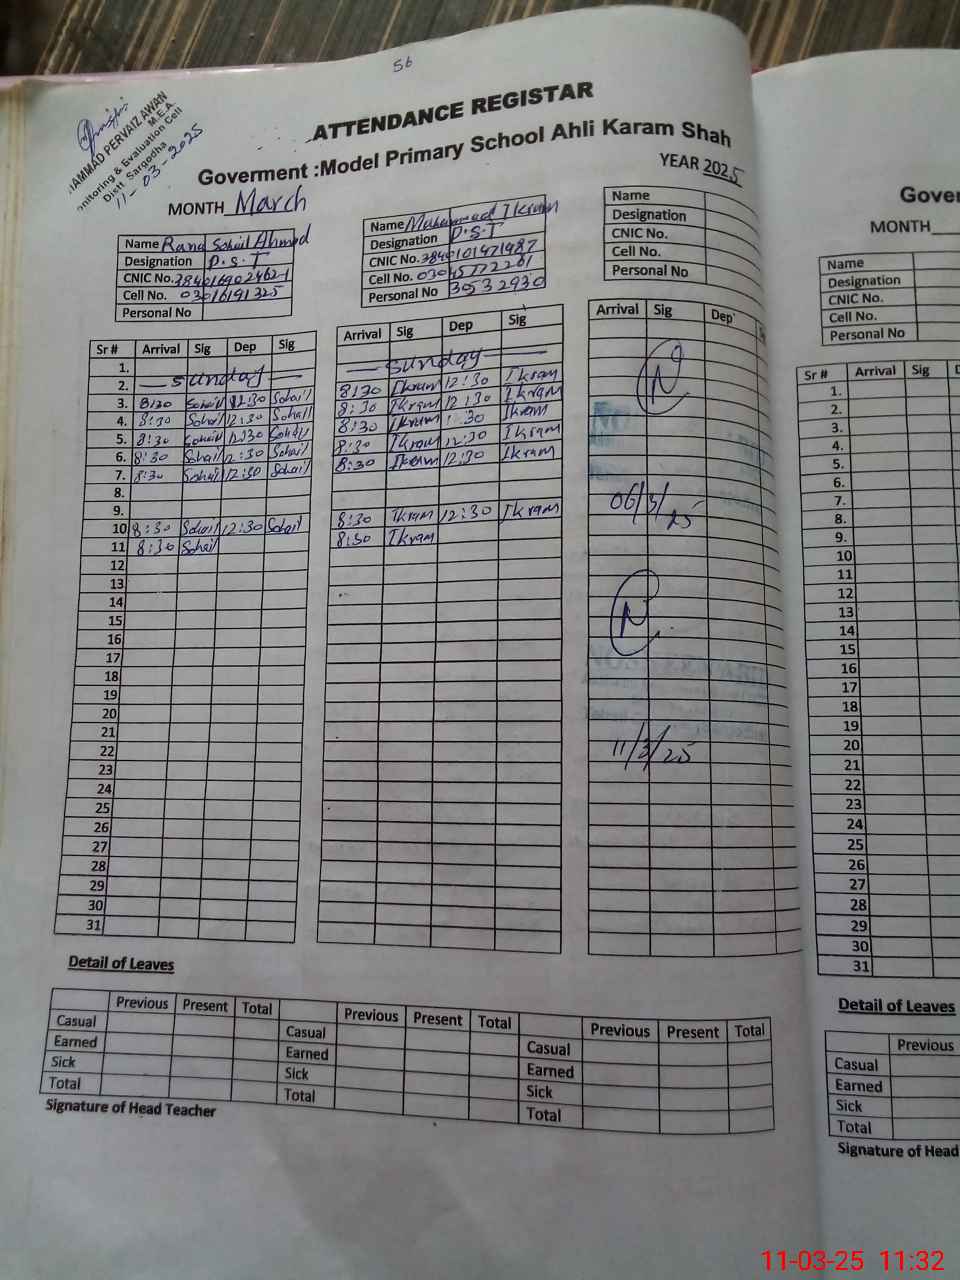 56
AMMAD PERVAIZ AWAN
M.E.A.
nitoring & Evaluation Cell
Distt Sargodha
11-03-2025
ATTENDANCE REGISTAR
Goverment :Model Primary School Ahli Karam Shah
YEAR 2025
MONTH March
Name Rana Sohail Ahmad
Designation P.S.T
CNIC No.
Cell No. 03016191325
Personal No
Name Muhammad Ikram
Designation P.S.T
CNIC No. 3840101471987
Cell No.
Personal No 30532930
Name
Designation
CNIC No.
Cell No.
Personal No
Sr # Arrival Sig Dep Sig
Arrival Sig Dep Sig
Arrival Sig Dep
1.
2. Sunday Sunday
3. 8:30 Sohail 12:30 Sohail 8:30 Ikram 12:30 Ikram
4. 8:30 Sohail 12:30 Sohail 8:30 Ikram 12:30 Ikram
5. 8:30 Sohail 12:30 Sohail 8:30 Ikram :30 Ikram
6. 8:30 Sohail 12:30 Sohail 8:30 Ikram 12:30 Ikram
7. 8:30 Sohail 12:30 Sohail 8:30 Ikram 12:30 Ikram
8.
9.
10 8:30 Sohail 12:30 Sohail 8:30 Ikram 12:30 Ikram
11 8:30 Sohail 8:30 Ikram
12
13
14
15
16
17
18
19
20
21
22
23
24
25
26
27
28
29
30
31
N
06/3/25
N
11/3/25
Detail of Leaves
Previous Present Total Previous Present Total Previous Present Total
Casual Casual Casual
Earned Earned Earned
Sick Sick Sick
Total Total Total
Signature of Head Teacher
Gover
MONTH
Name
Designation
CNIC No.
Cell No.
Personal No
Sr # Arrival Sig D
1.
2.
3.
4.
5.
6.
7.
8.
9.
10
11
12
13
14
15
16
17
18
19
20
21
22
23
24
25
26
27
28
29
30
31
Detail of Leaves
Previous
Casual
Earned
Sick
Total
Signature of Head
11-03-25 11:32